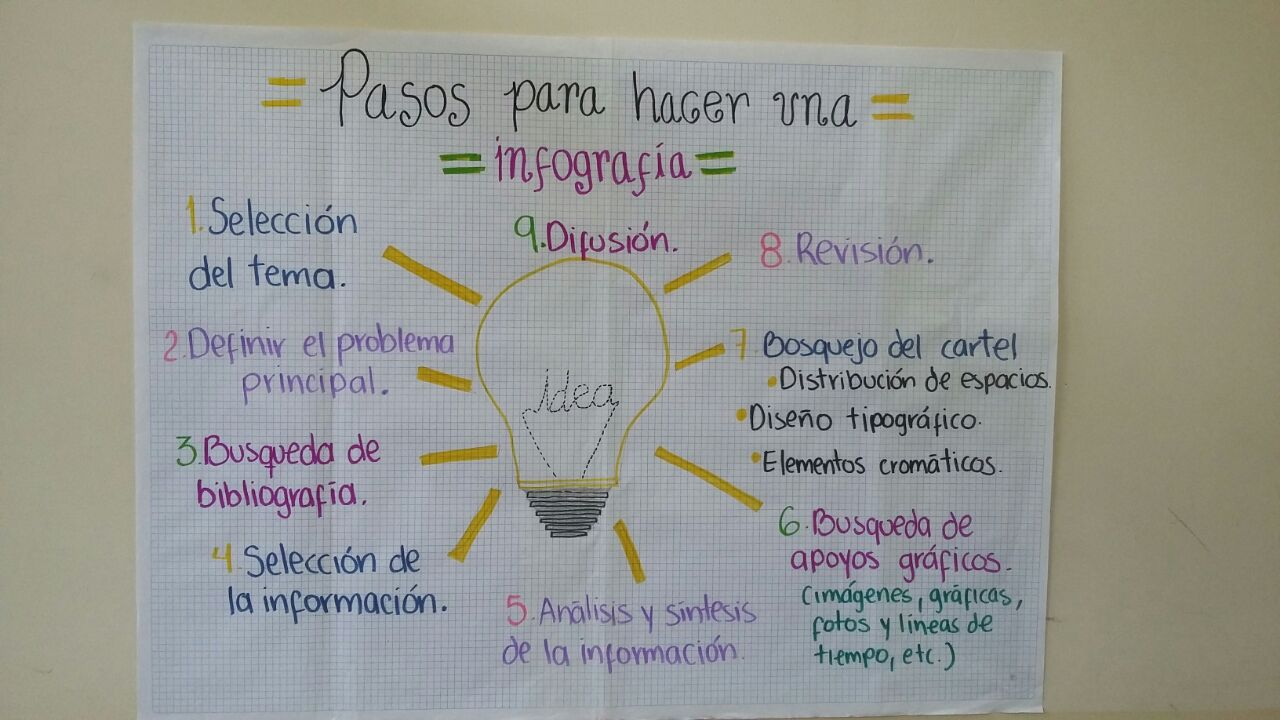 Pasos para hacer una
infografía
1. Selección
del tema.
2. Definir el problema
principal.
3. Busqueda de
bibliografía.
4. Selección de
la información.
5. Análisis y síntesis
de la información.
6. Busqueda de
apoyos gráficos.
(imágenes, gráficas,
fotos y líneas de
tiempo, etc.)
7. Bosquejo del cartel
• Distribución de espacios.
• Diseño tipográfico.
• Elementos cromáticos.
8. Revisión.
9. Difusión.
idea